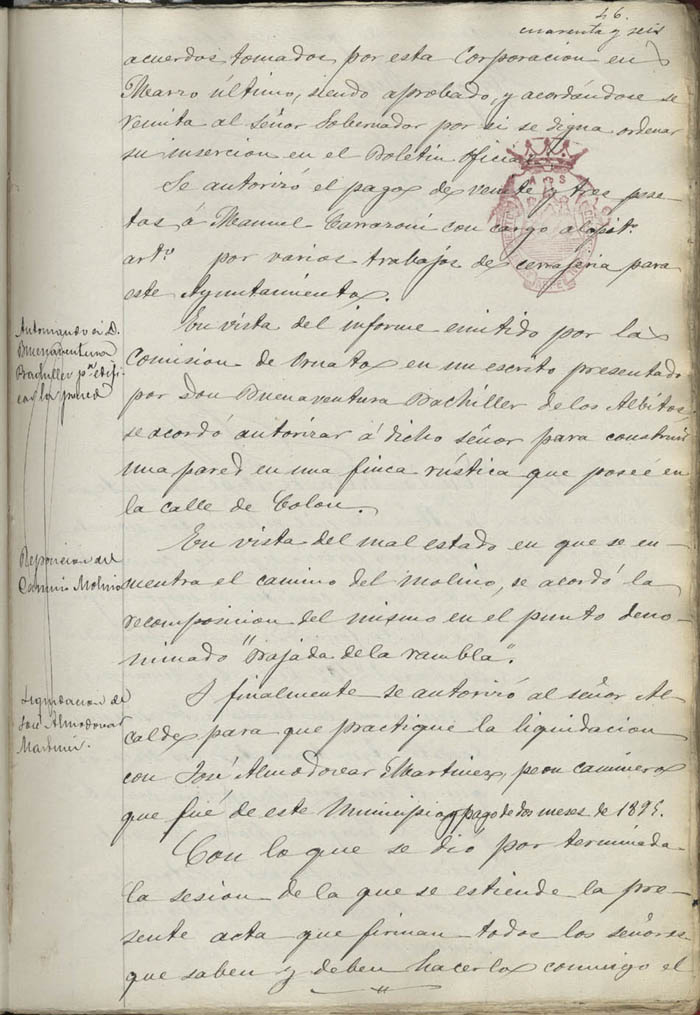 46.
cuarenta y seis
acuerdos tomados por esta Corporacion en
Marzo último, siendo aprobado, y acordándose se
remita al Señor Gobernador por si se digna ordenar
su insercion en el Boletin oficial.
Se autorizó el pago de veinte y tres pese-
tas á Manuel con cargo al capit.º
art.º por varios trabajos de cerrajeria para
este Ayuntamiento.
Autorizando á D.
Buenaventura
Bachiller pª edifi-
car la pared
En vista del informe emitido por la
Comision de Ornato en un escrito presentado
por Don Buenaventura Bachiller de los Albitos
se acordó autorizar á dicho señor para construir
una pared en una finca rústica que poseé en
la calle de Colon.
Reposicion del
Camino Molino
En vista del mal estado en que se en-
cuentra el camino del molino, se acordó la
recomposicion del mismo en el punto deno-
minado "Bajada de la rambla".
Liquidacion de
José Almodovar
Martinez.
Y finalmente se autorizó al señor Al-
calde para que practique la liquidacion
con José Almodovar Martinez, peon caminero
que fué de este Municipio y pago de dos meses de 1895.
Con lo que se dió por terminada
la sesion de la que se estiende la pre-
sente acta que firman todos los señores
que saben y deben hacerlo conmigo el